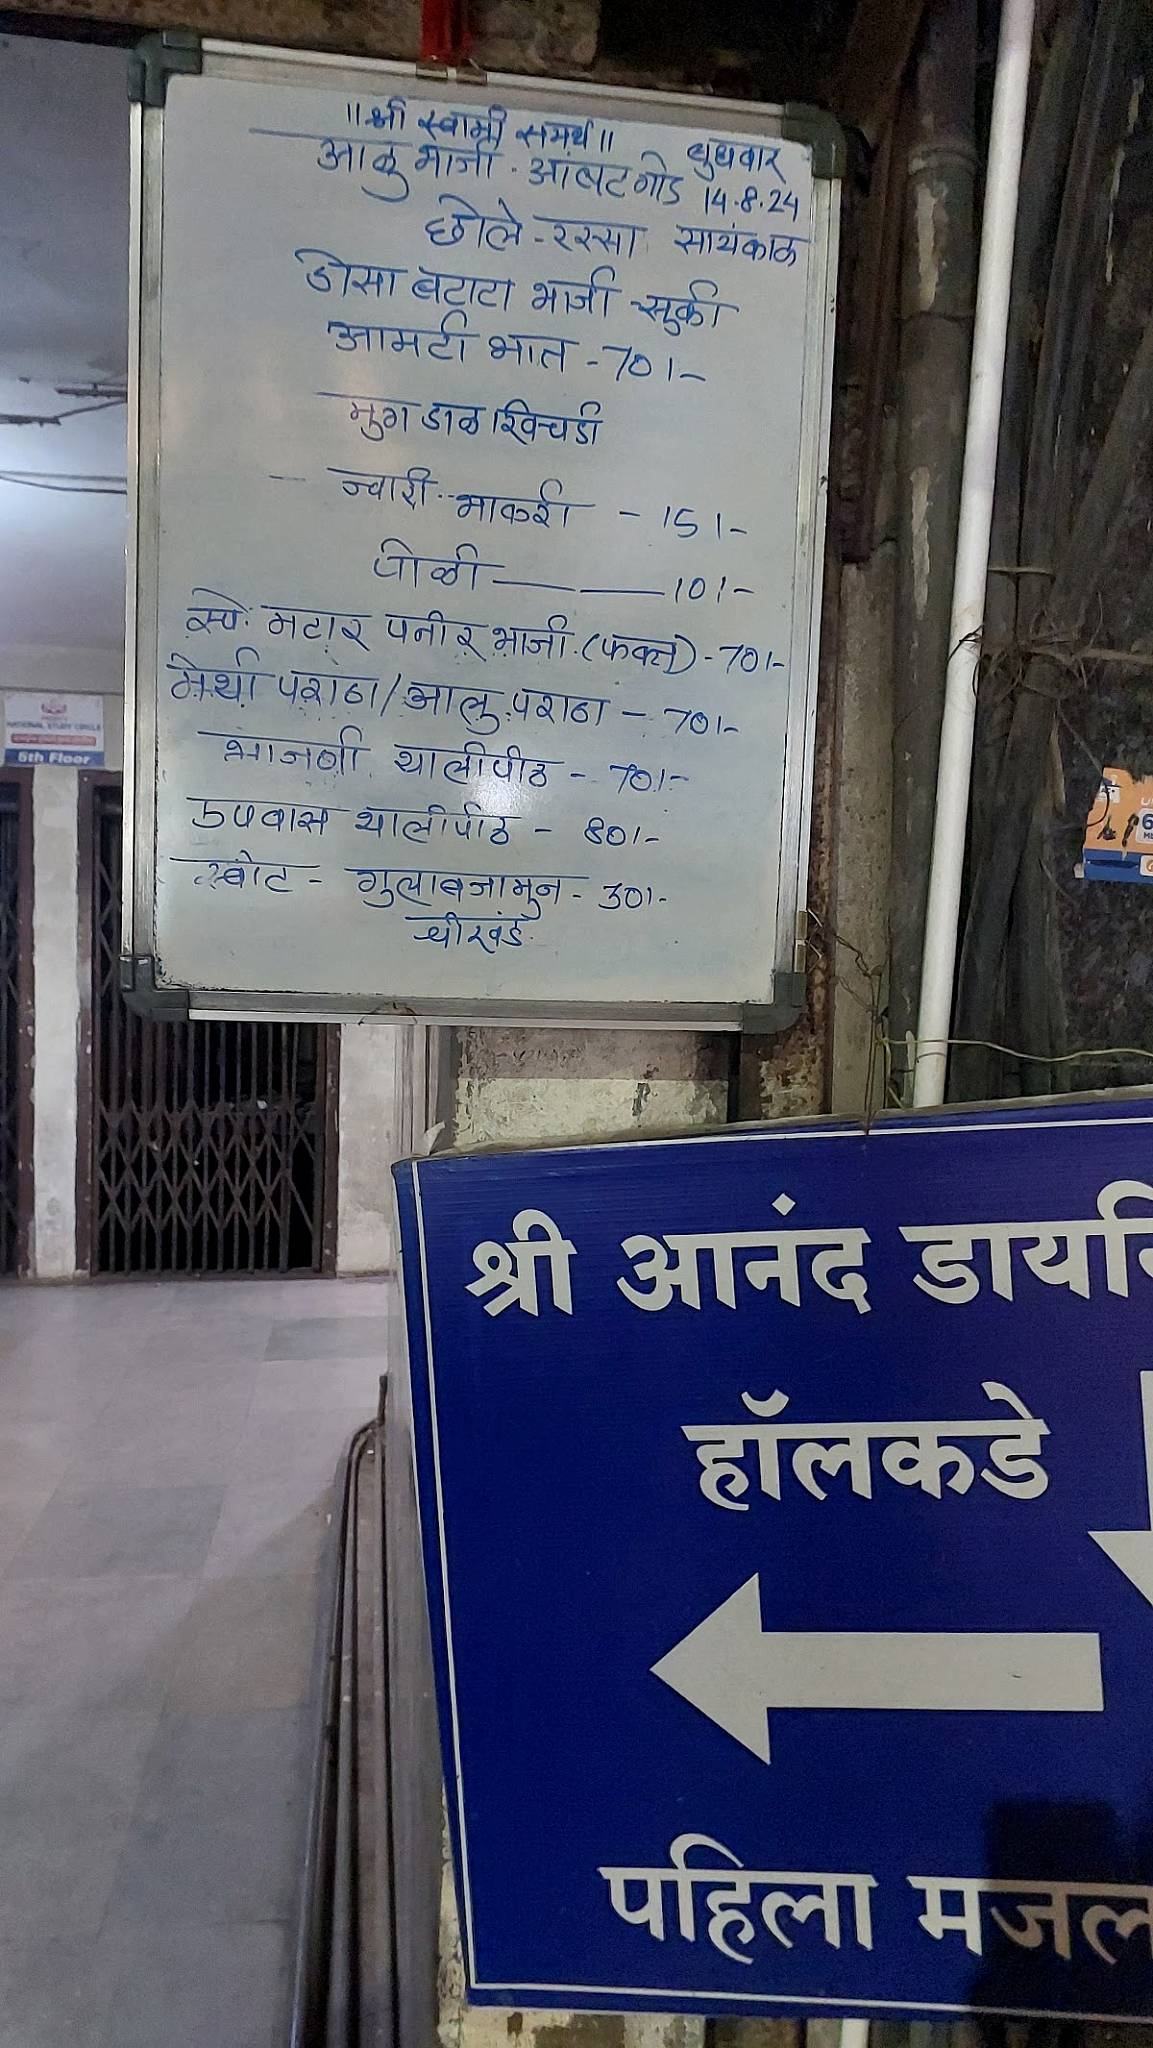 ॥श्री स्वामी समर्थ॥ बुधवार
आळु भाजी - आंबटगोड 14.8.24
छोले - रस्सा सायंकाळ
डोसा बटाटा भाजी सुकी
आमटी भात - 70/-
मुग डाळ खिचडी
ज्वारी - भाकरी - 15/-
पोळी 10/-
स्पे. मटार पनीर भाजी (फक्त) - 70/-
मेथी पराठा/आलु पराठा - 70/-
भाजणी थालीपीठ - 70/-
उपवास थालीपीठ - 80/-
स्वीट - गुलाबजामुन - 30/-
श्रीखंड
NATIONAL STUDY CIRCLE
5th Floor
श्री आनंद डायनि
हॉलकडे
पहिला मजल